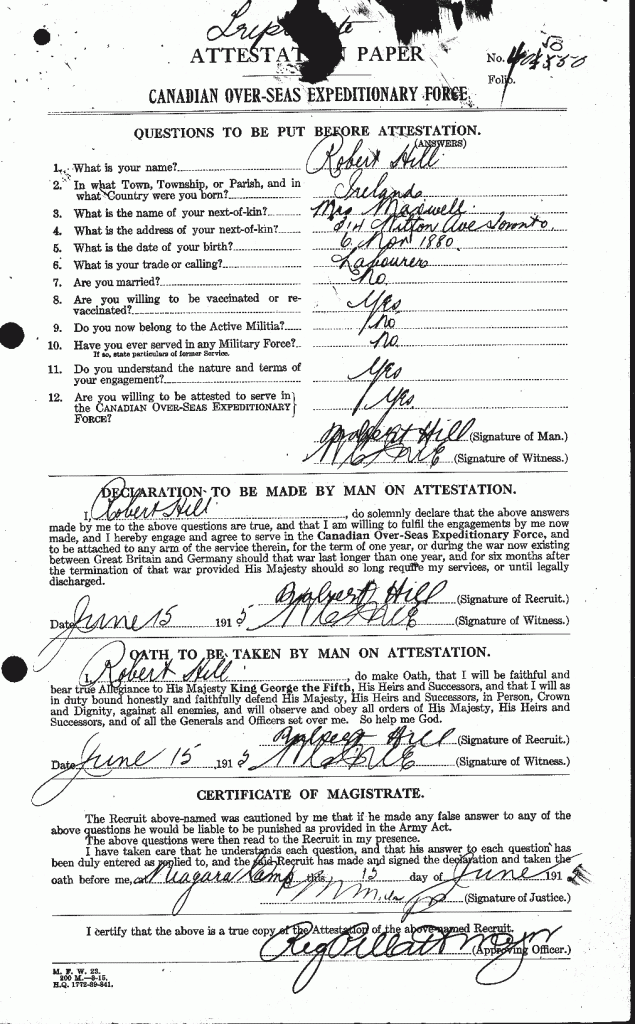 Triplicate
ATTESTATION PAPER
No.
Folio.
CANADIAN OVER-SEAS EXPEDITIONARY FORCE
QUESTIONS TO BE PUT BEFORE ATTESTATION.
(ANSWERS)
1. What is your name? Robert Hill
2. In what Town, Township, or Parish, and in
what Country were you born? Ireland
3. What is the name of your next-of-kin? Mrs Maxwell
4. What is the address of your next-of-kin? Ave Toronto
5. What is the date of your birth? 6 1880
6. What is your trade or calling? Labourer
7. Are you married? No
8. Are you willing to be vaccinated or re-
vaccinated? Yes
9. Do you now belong to the Active Militia? No
10. Have you ever served in any Military Force? No
If so, state particulars of former Service.
11. Do you understand the nature and terms of
your engagement? Yes
12. Are you willing to be attested to serve in
the CANADIAN OVER-SEAS EXPEDITIONARY
FORCE? Yes
Hill (Signature of Man.)
(Signature of Witness.)
DECLARATION TO BE MADE BY MAN ON ATTESTATION.
I, Robert Hill, do solemnly declare that the above answers
made by me to the above questions are true, and that I am willing to fulfil the engagements by me now
made, and I hereby engage and agree to serve in the Canadian Over-Seas Expeditionary Force, and
to be attached to any arm of the service therein, for the term of one year, or during the war now existing
between Great Britain and Germany should that war last longer than one year, and for six months after
the termination of that war provided His Majesty should so long require my services, or until legally
discharged.
Hill (Signature of Recruit.)
Date June 15 1915 (Signature of Witness.)
OATH TO BE TAKEN BY MAN ON ATTESTATION.
I, Robert Hill, do make Oath, that I will be faithful and
bear true Allegiance to His Majesty King George the Fifth, His Heirs and Successors, and that I will as
in duty bound honestly and faithfully defend His Majesty, His Heirs and Successors, in Person, Crown
and Dignity, against all enemies, and will observe and obey all orders of His Majesty, His Heirs and
Successors, and of all the Generals and Officers set over me. So help me God.
Hill (Signature of Recruit.)
Date June 15 1915 (Signature of Witness.)
CERTIFICATE OF MAGISTRATE.
The Recruit above-named was cautioned by me that if he made any false answer to any of the
above questions he would be liable to be punished as provided in the Army Act.
The above questions were then read to the Recruit in my presence.
I have taken care that he understands each question, and that his answer to each question has
been duly entered as replied to, and the said Recruit has made and signed the declaration and taken the
oath before me, at Niagara Camp this 15 day of June 1915
(Signature of Justice.)
I certify that the above is a true copy of the Attestation of the above-named Recruit.
(Approving Officer.)
M. F. W. 23.
200 M.—8-15.
H.Q. 1772-39-841.